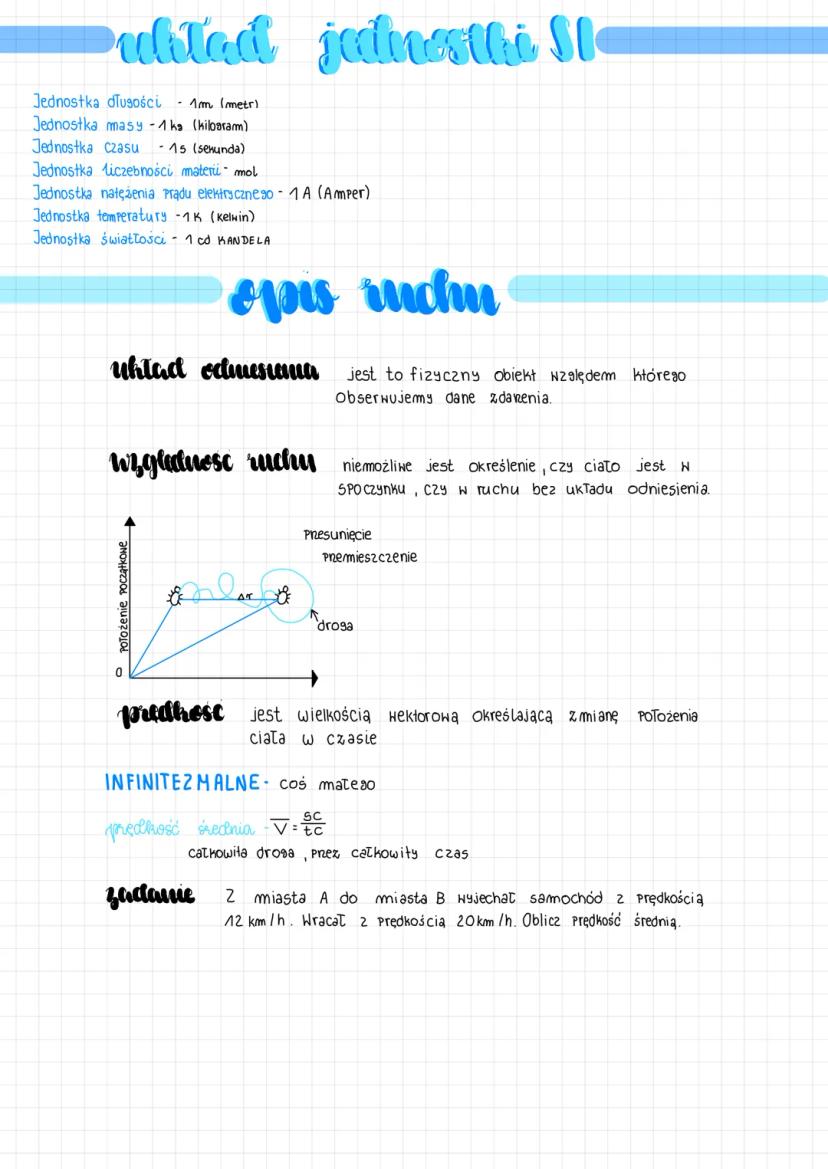 układ jednostki SI
Jednostka długości - 1m (metr)
Jednostka masy - 1 kg (kilogram)
Jednostka czasu - 1s (sekunda)
Jednostka liczebności materii - mol
Jednostka natężenia prądu elektrycznego - 1 A (Amper)
Jednostka temperatury - 1 K (kelwin)
Jednostka światłości - 1 cd KANDELA
opis ruchu
układ odniesienia jest to fizyczny obiekt względem którego
obserwujemy dane zdarzenia.
względność ruchu niemożliwe jest określenie, czy ciało jest w
spoczynku, czy w ruchu bez układu odniesienia.
Przesunięcie
przemieszczenie
położenie początkowe
Δr
droga
0
prędkość jest wielkością wektorową określającą zmianę położenia
ciała w czasie
INFINITEZMALNE - coś małego
prędkość średnia - V = sc/tc
całkowita droga, przez całkowity czas
zadanie Z miasta A do miasta B wyjechał samochód z prędkością
12 km/h. Wracał z prędkością 20 km/h. Oblicz prędkość średnią.